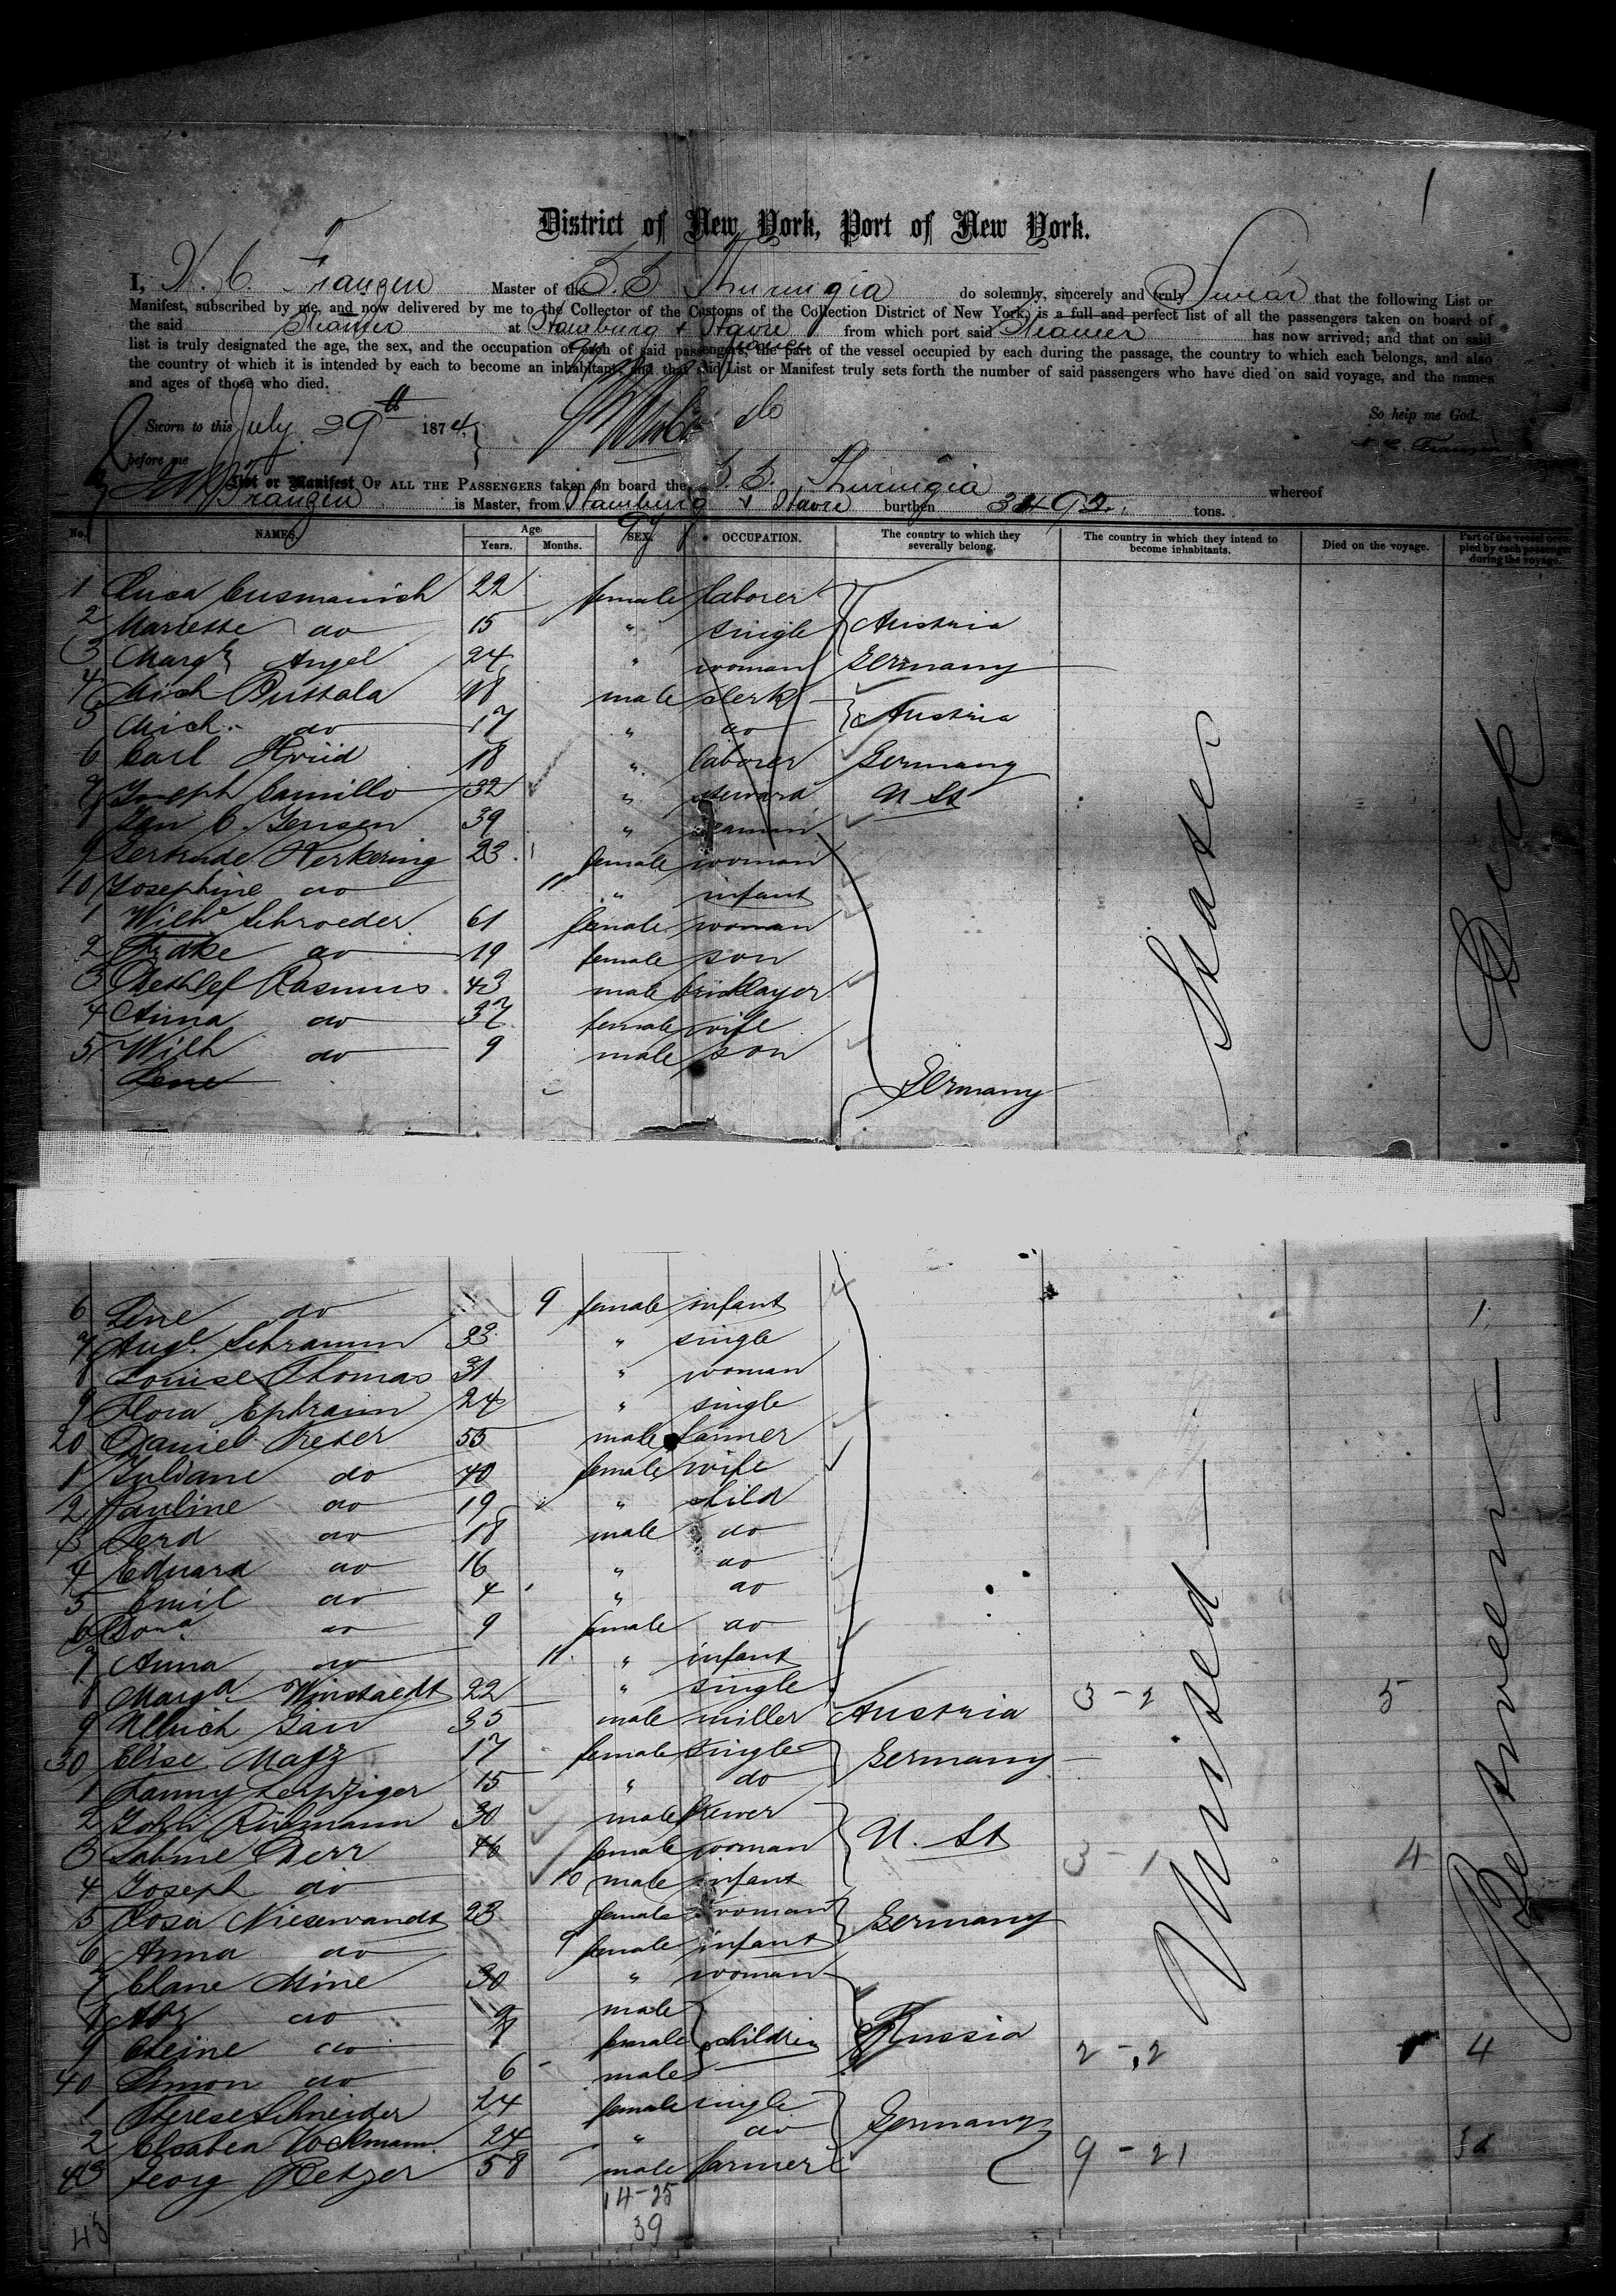 1
District of New York, Port of New York.
I, N. C. Franzen Master of the S.S. Thuringia do solemnly, sincerely and truly Swear that the following List or
Manifest, subscribed by me, and now delivered by me to the Collector of the Customs of the Collection District of New York, is a full and perfect list of all the passengers taken on board of
the said Steamer at Hamburg & Havre from which port said Steamer has now arrived; and that on said
list is truly designated the age, the sex, and the occupation of each of said passengers, the part of the vessel occupied by each during the passage, the country to which each belongs, and also
the country of which it is intended by each to become an inhabitant, and that said List or Manifest truly sets forth the number of said passengers who have died on said voyage, and the names
and ages of those who died.
So help me God.
Sworn to this July 29th 1874
N. C. Franzen
before me
List or Manifest OF ALL THE PASSENGERS taken on board the S. S. Thuringia whereof
Franzen is Master, from Hamburg & Havre burthen 3492 tons.
No. NAMES. Age. SEX. OCCUPATION. The country to which they severally belong. The country in which they intend to become inhabitants. Died on the voyage. Part of the vessel occupied by each passenger during the voyage.
Years. Months.
1 Cusmanich 22 female laborer
2 Mariette do 15 " single Austria
3 Margr Angel 24 " woman Germany
4 Mich 18 male clerk
5 Mich. do 17 " do Austria
6 Carl 18 " laborer Germany
7 Joseph Camillo 32 " steward U. St
8 C. Jensen 39 " seaman
9 Gertrude Kerkering 23 female woman
10 Josephine do 11 " infant
1 Wilhe Schroeder 61 female woman
2 do 19 female son
3 Dethlef Rasmus 43 male bricklayer
4 Anna do 37 female wife
5 Wilh do 9 male son
Lene
Germany
States
Deck
6 Lene do 9 female infant
7 Auge Schramm 23 " single
8 Louise Thomas 31 " woman
9 Flora Ephraim 24 " single
20 Daniel Preter 55 male farmer
1 Juliane do 40 female wife
2 Pauline do 19 " child
3 Ferd do 18 male do
4 Eduard do 16 " do
5 Emil do 4 " do
6 do 9 female do
7 Anna do 11 " infant
8 Marga Winstaedt 22 " single 3-2 5
9 Ullrich Jan 35 male miller Austria
30 Elise Matz 17 female single Germany
1 Fanny Leipziger 15 " do
2 Rühmann 30 male brewer
3 Sabine Derr 46 female woman U. St 3-1 4
4 Joseph do 10 male infant
5 Rosa Niesewandt 23 female woman Germany
6 Anna do 9 female infant
7 Clane Mine 30 " woman
8 Abr do 9 male
9 do female children Russia
40 Simon do 6 male 2-2 4
1 Therese Schneider 24 female single
2 Elsabea Vockmann 24 " do Germany
43 Georg Retzer 58 male farmer 9-21
14-25
39
United
Between